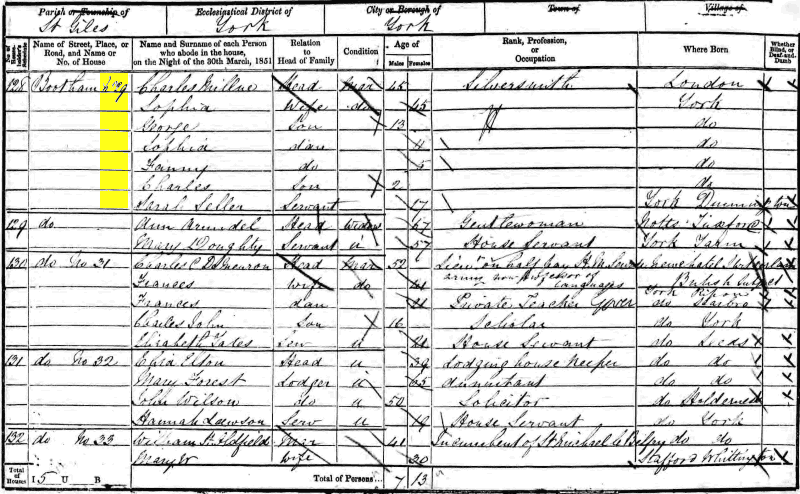 Parish or Township of St Giles
Ecclesiastical District of York
City or Borough of York
Town of
Village of
No. of Householder's Schedule
Name of Street, Place, or Road, and Name or No. of House
Name and Surname of each Person who abode in the house, on the Night of the 30th March, 1851
Relation to Head of Family
Condition
Age of
Males
Females
Rank, Profession, or Occupation
Where Born
Whether Blind, or Deaf-and-Dumb
128 Bootham No 29 Charles Millne Head Mar 45 Silversmith London
Sophia Wife do 45 York
George Son 13 do
Sophia dau 11 do
Fanny do 5 do
Charles Son 2 do
Sarah Seller Servant 17 York
129 do Ann Arundel Head Widow 67 Gentlewoman Notts Tuxford
Mary Doughty Servant u 57 House Servant York Yarm
130 do No 31 Charles C Head Mar 52 Lieut on half pay
army now Professor of Languages British Subject
Frances Wife do York Ripon
Frances dau 21 Private Teacher Gover do
Charles John Son 16 Scholar do York
Elizabeth Yates Serv u 21 House Servant do Leeds
131 do No 32 Eliza Elton Head u 39 Lodging house Keeper do do
Mary Forest Lodger u 65 Annuitant do do
John Wilson do u 50 Solicitor do Holderness
Hannah Lawson Serv u 19 House Servant do York
132 do No 33 William H Oldfield Mar 41 Incumbent of St Michael le Belfry do do
Mary W Wife 30 Stafford Whittington
Total of Houses I 5 U B Total of Persons 7 13